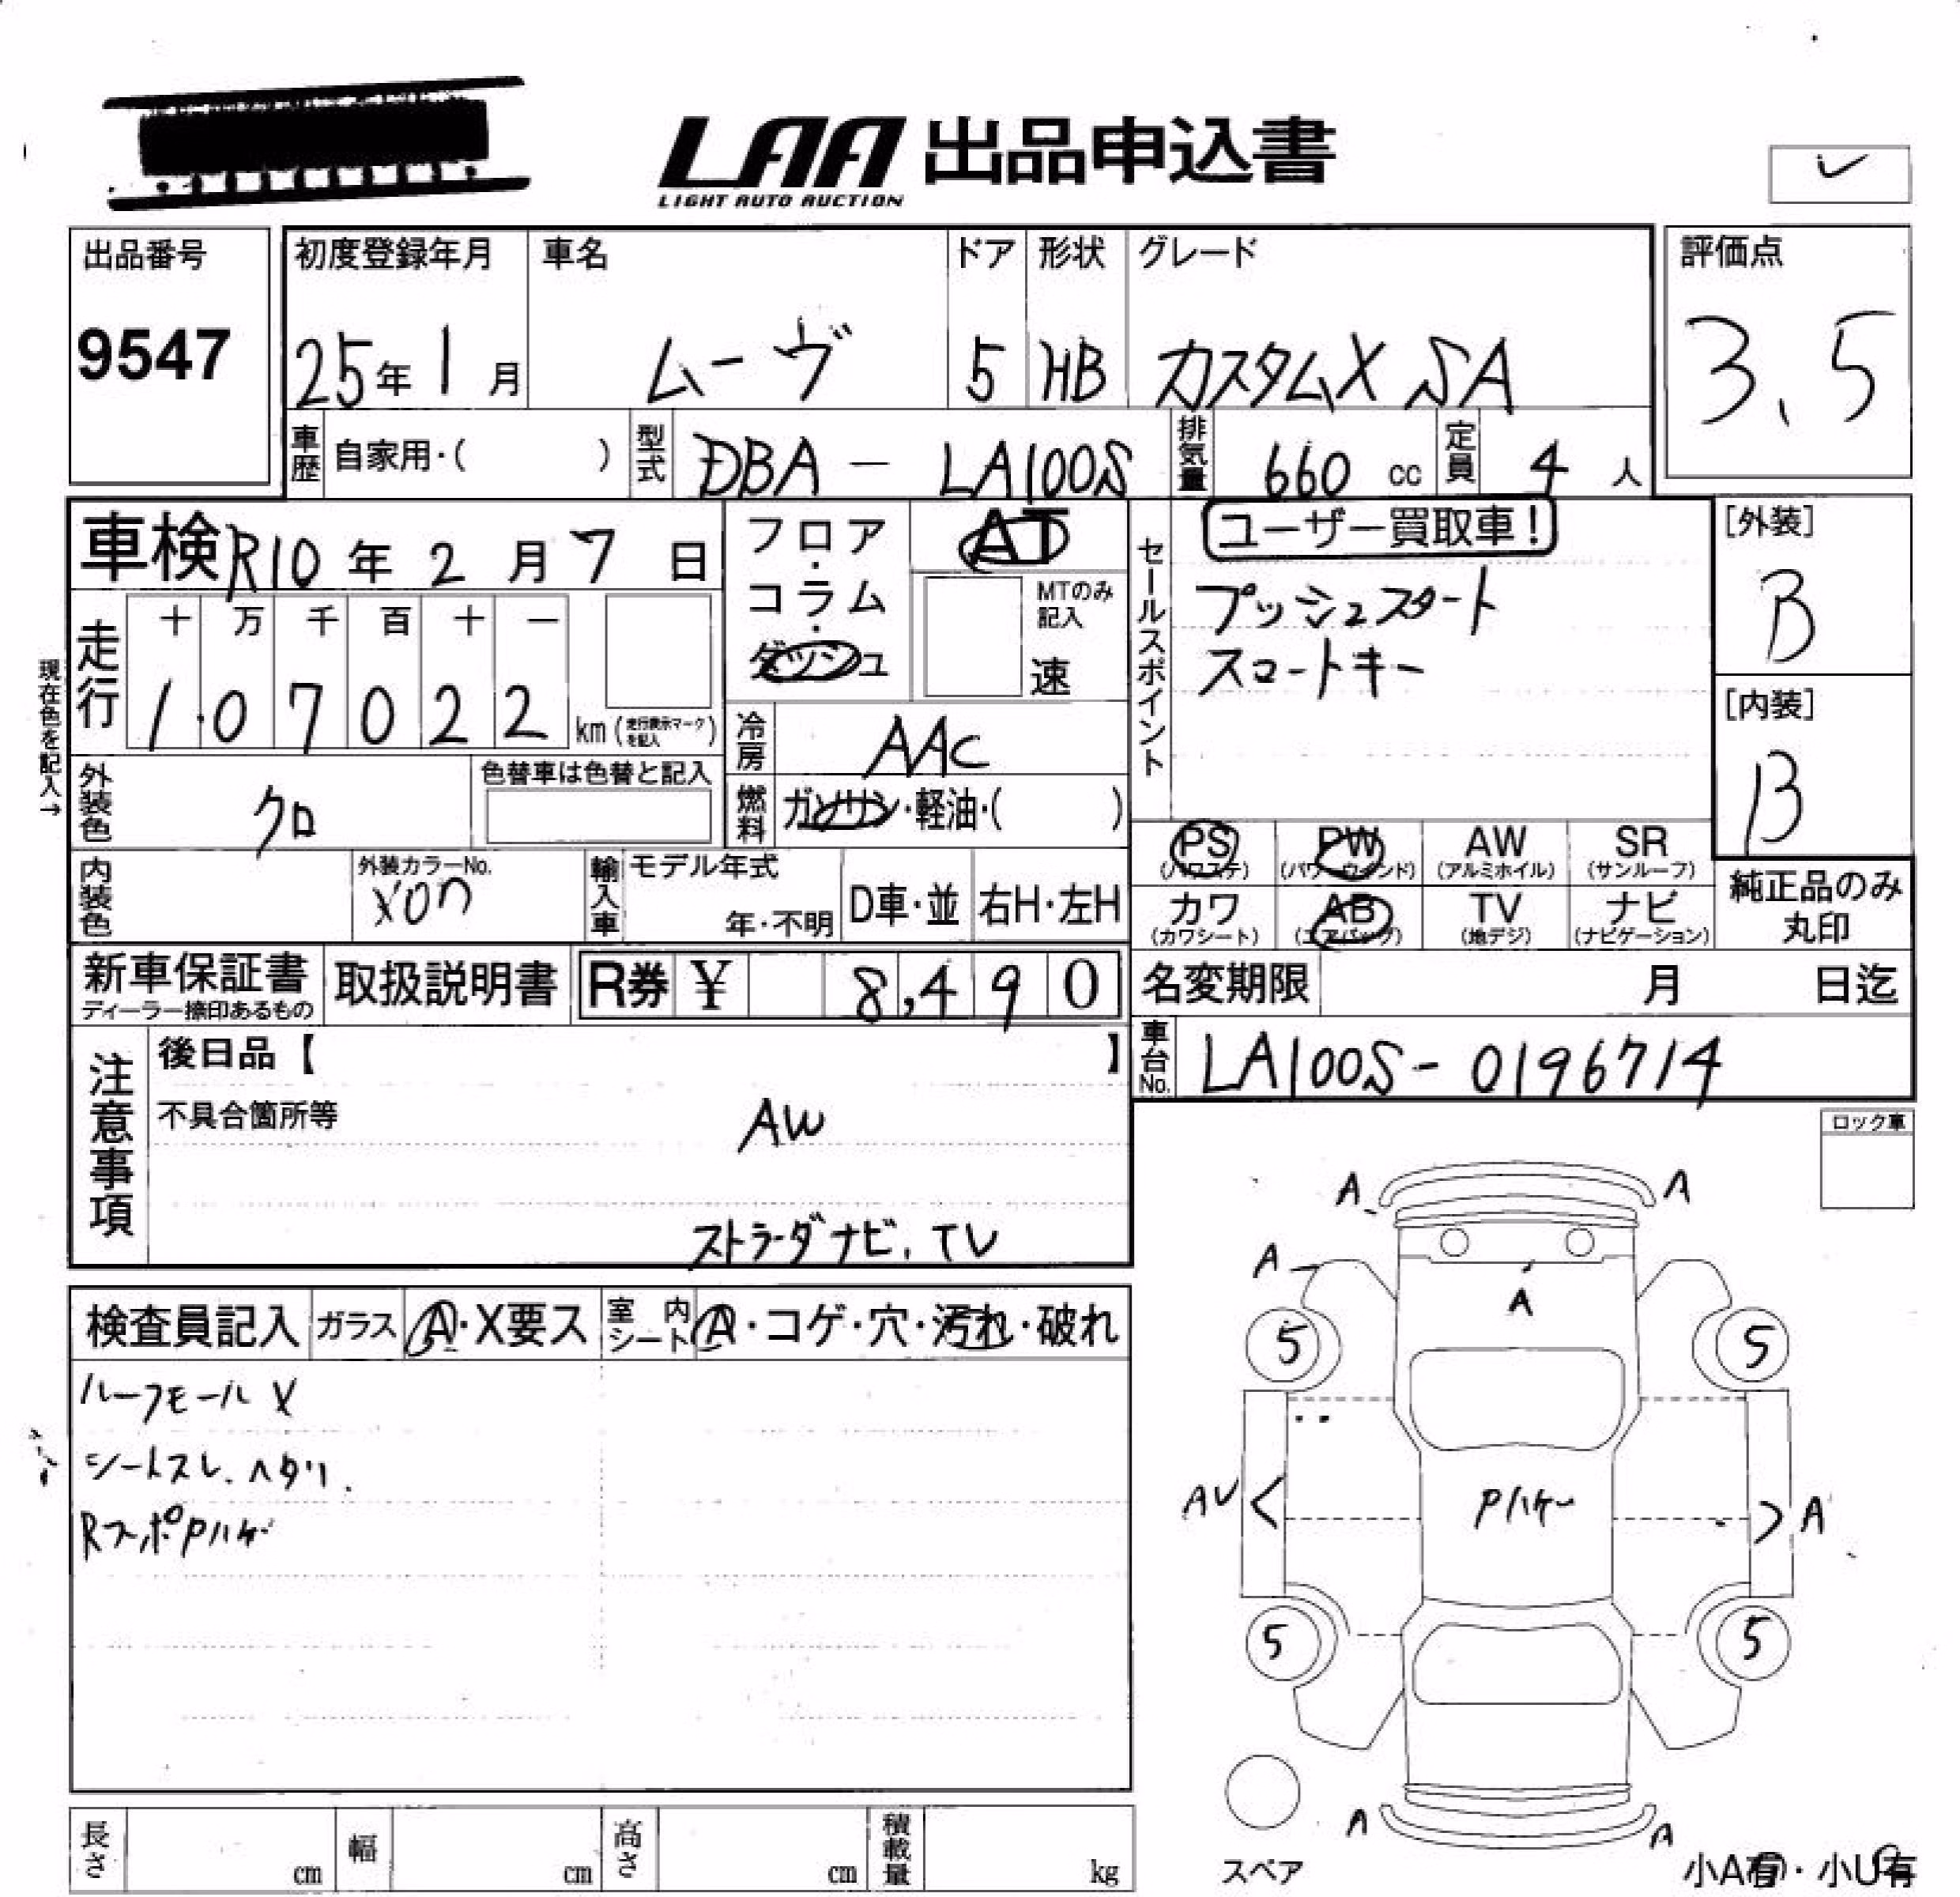 LAA 出品申込書
LIGHT AUTO AUCTION
出品番号
9547
初度登録年月
25年1月
車名
ムーヴ
ドア
5
形状
HB
グレード
カスタムX SA
評価点
3.5
車歴
自家用・( )
型式
DBA - LA100S
排気量
660 cc
定員
4 人
車検 R10年2月7日
フロア・コラム・ダッシュ
AT
MTのみ記入
速
セールスポイント
ユーザー買取車!
プッシュスタート
スマートキー
[外装]
B
[内装]
B
現在色を記入→
走行
十 万 千 百 十 一
1 0 7 0 2 2 km (走行表示マークを記入)
冷房
AAC
外装色
クロ
色替車は色替と記入
燃料
ガソリン・軽油・( )
PS (パワステ)
PW (パワーウインド)
AW (アルミホイル)
SR (サンルーフ)
カワ (カワシート)
AB (エアバッグ)
TV (地デジ)
ナビ (ナビゲーション)
純正品のみ丸印
内装色
外装カラーNo.
X07
輸入車
モデル年式
年・不明
D車・並
右H・左H
新車保証書
ディーラー捺印あるもの
取扱説明書
R券 ¥ 8,490
名変期限 月 日迄
車台No.
LA100S - 0196714
注意事項
後日品【 】
不具合箇所等
AW
ストラーダナビ、TV
ロック車
検査員記入
ガラス
A・X要ス
室内シート
A・コゲ・穴・汚れ・破れ
ルーフモールX
シートスレ、ヘタリ.
RスポPハゲ
A A
A
A
5 5
AU A
Pハゲ
5 5
A A
スペア
小A有・小U有
長さ cm
幅 cm
高さ cm
積載量 kg